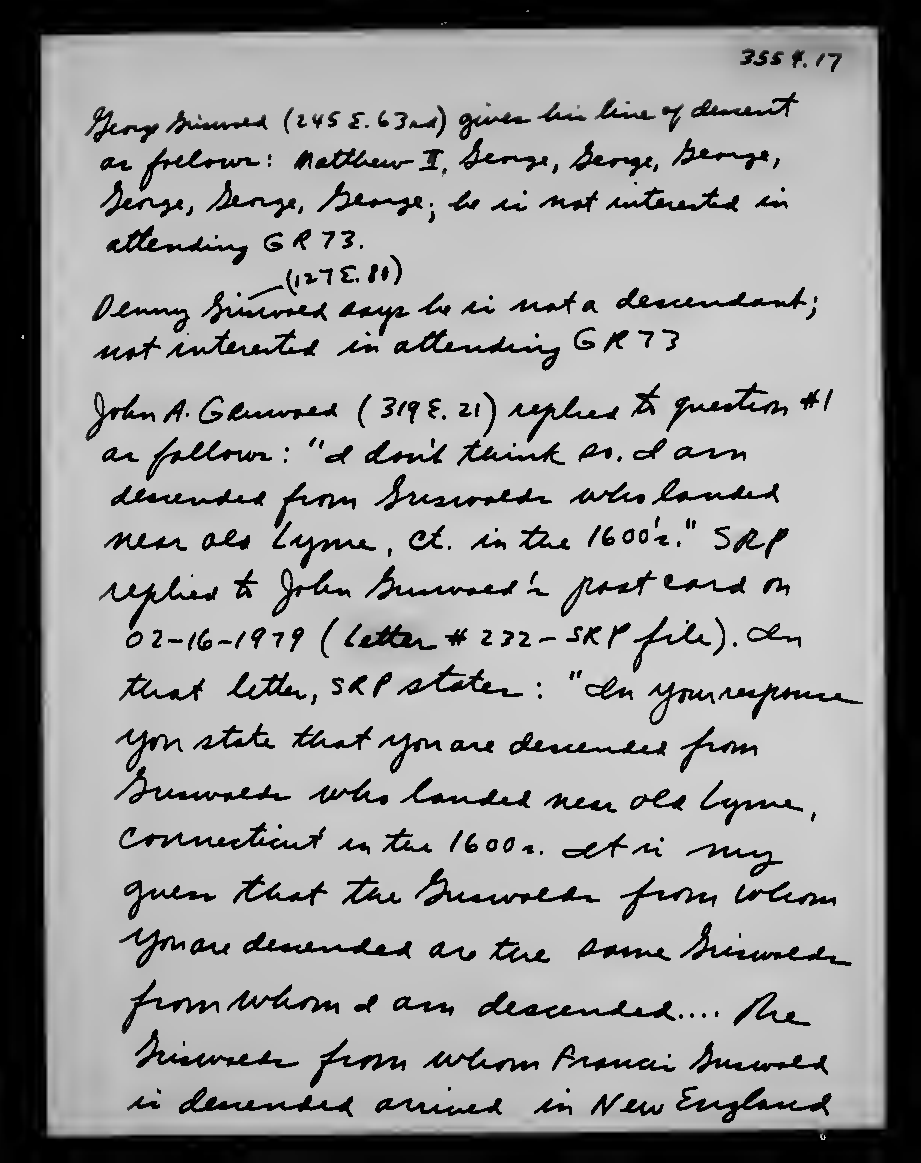 355 9.17
George Griswold (245 E. 63rd) gives his line of descent
as follows: Matthew II, George, George, George,
George, George, George; he is not interested in
attending GR 73.
(127 E. 80)
Denny Griswold says he is not a descendant;
not interested in attending GR 73
John A. Griswold (319 E. 21) replied to question #1
as follows: "I don't think so. I am
descended from Griswolds who landed
near old Lyme, Ct. in the 1600's." SRP
replied to John Griswold's post card on
02-16-1979 (Letter # 232 - SRP file). In
that letter, SRP states: "In your response
you state that you are descended from
Griswolds who landed near old Lyme,
Connecticut in the 1600s. It is my
guess that the Griswolds from whom
you are descended are the same Griswolds
from whom I am descended.... The
Griswolds from whom Francis Griswold
is descended arrived in New England